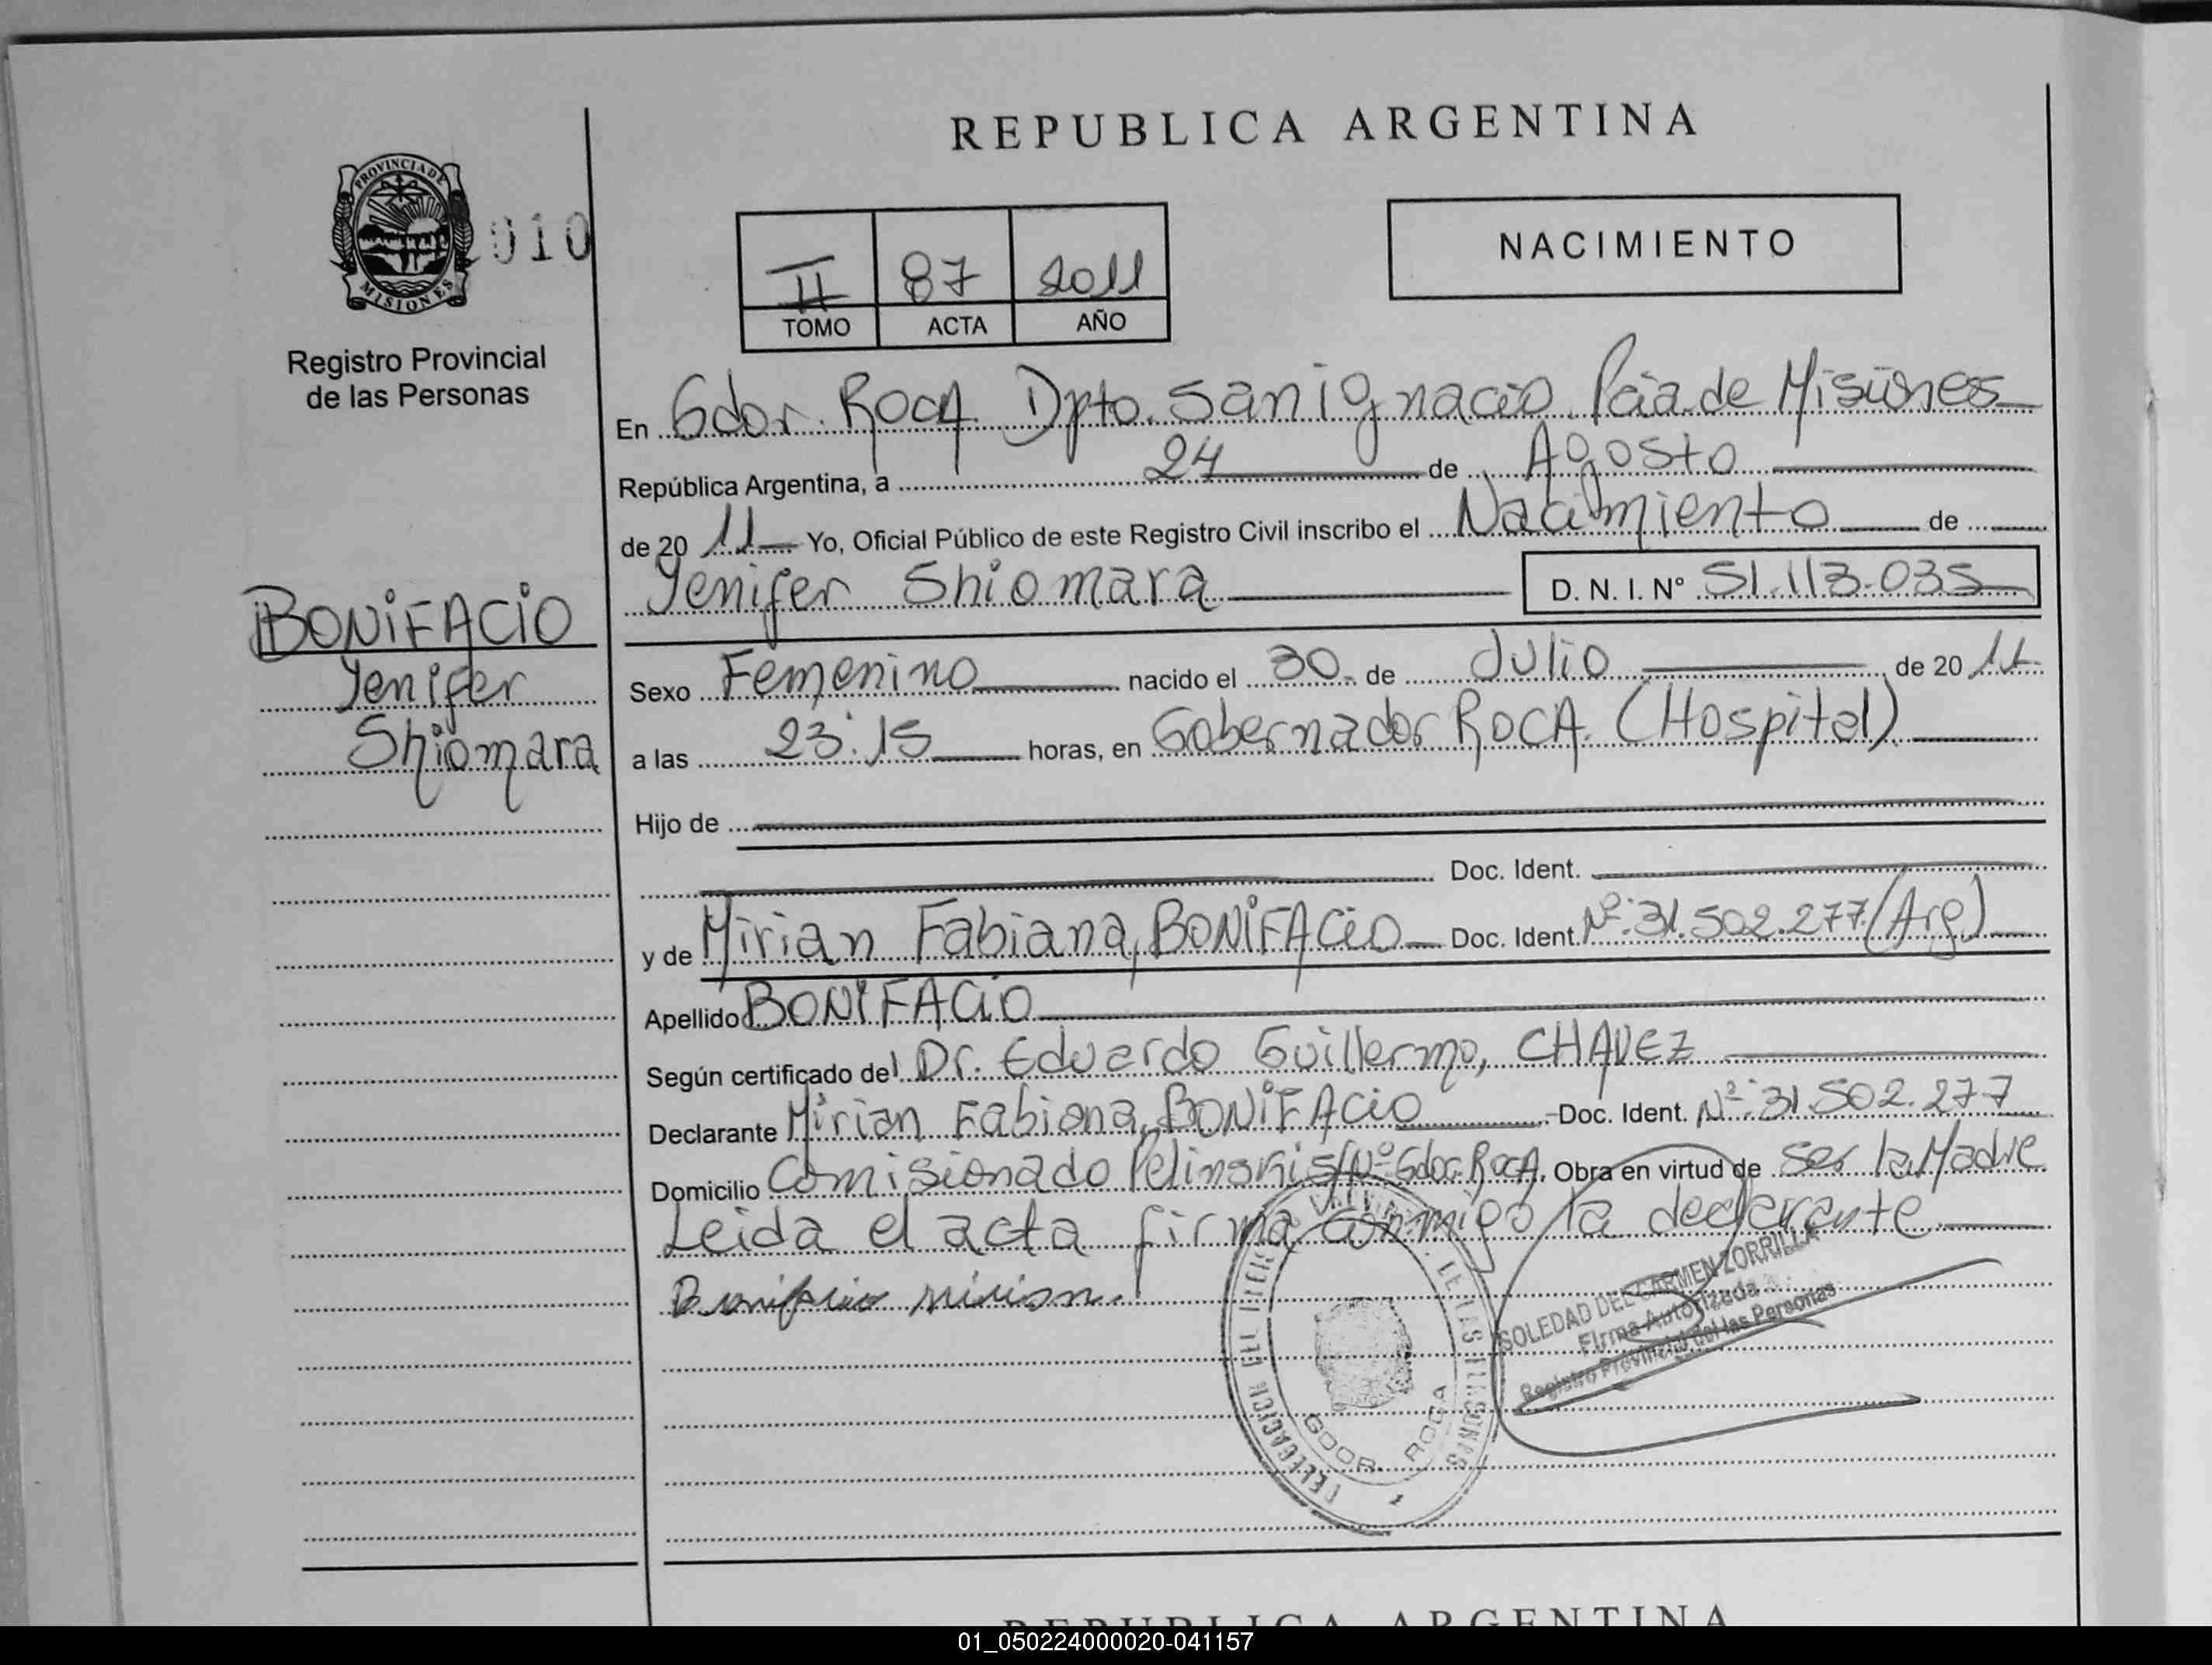 REPUBLICA ARGENTINA
PROVINCIA DE
MISIONES
010
Registro Provincial
de las Personas
II 87 2011
TOMO ACTA AÑO
NACIMIENTO
En Gdor. Roca Dpto. San Ignacio Pcia. de Misiones
República Argentina, a 24 de Agosto
de 20 11 Yo, Oficial Público de este Registro Civil inscribo el Nacimiento de
Yenifer Shiomara D. N. I. N° 51.113.035
BONIFACIO
Yenifer
Shiomara
Sexo Femenino nacido el 30 de Julio de 20 11
a las 23:15 horas, en Gobernador Roca (Hospital)
Hijo de
Doc. Ident.
y de Mirian Fabiana, BONIFACIO Doc. Ident. Nº: 31.502.277 (Arg)
Apellido BONIFACIO
Según certificado del Dr. Eduardo Guillermo, CHAVEZ
Declarante Mirian Fabiana, BONIFACIO Doc. Ident. Nº: 31.502.277
Domicilio Comisionado Pelinski s/Nº Gdor. Roca, Obra en virtud de ser la Madre
Leida el acta firma conmigo la declarante
Bonifacio mirian.
SOLEDAD DEL CARMEN ZORRILLA
Firma Autorizada
Registro Provincial de las Personas
DE LAS PERSONAS
GDOR. ROCA
REPUBLICA ARGENTINA
01_050224000020-041157